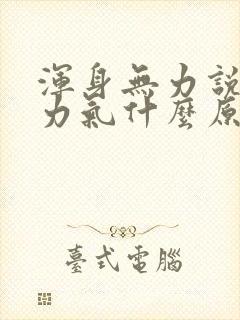 渾身無力說
力氣什麼原
臺式電腦